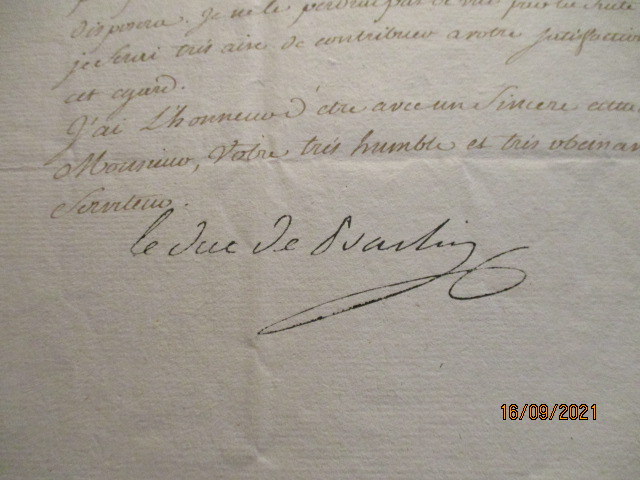 disposera. Je ne le perdrai pas de vue pour la suite
je serai très aise de contribuer a votre satisfaction
cet egard.
J'ai L'honneur d'être avec un Sincere
Monsieur, Votre très humble et très obeissant
Serviteur.
le duc de Praslin
16/09/2021